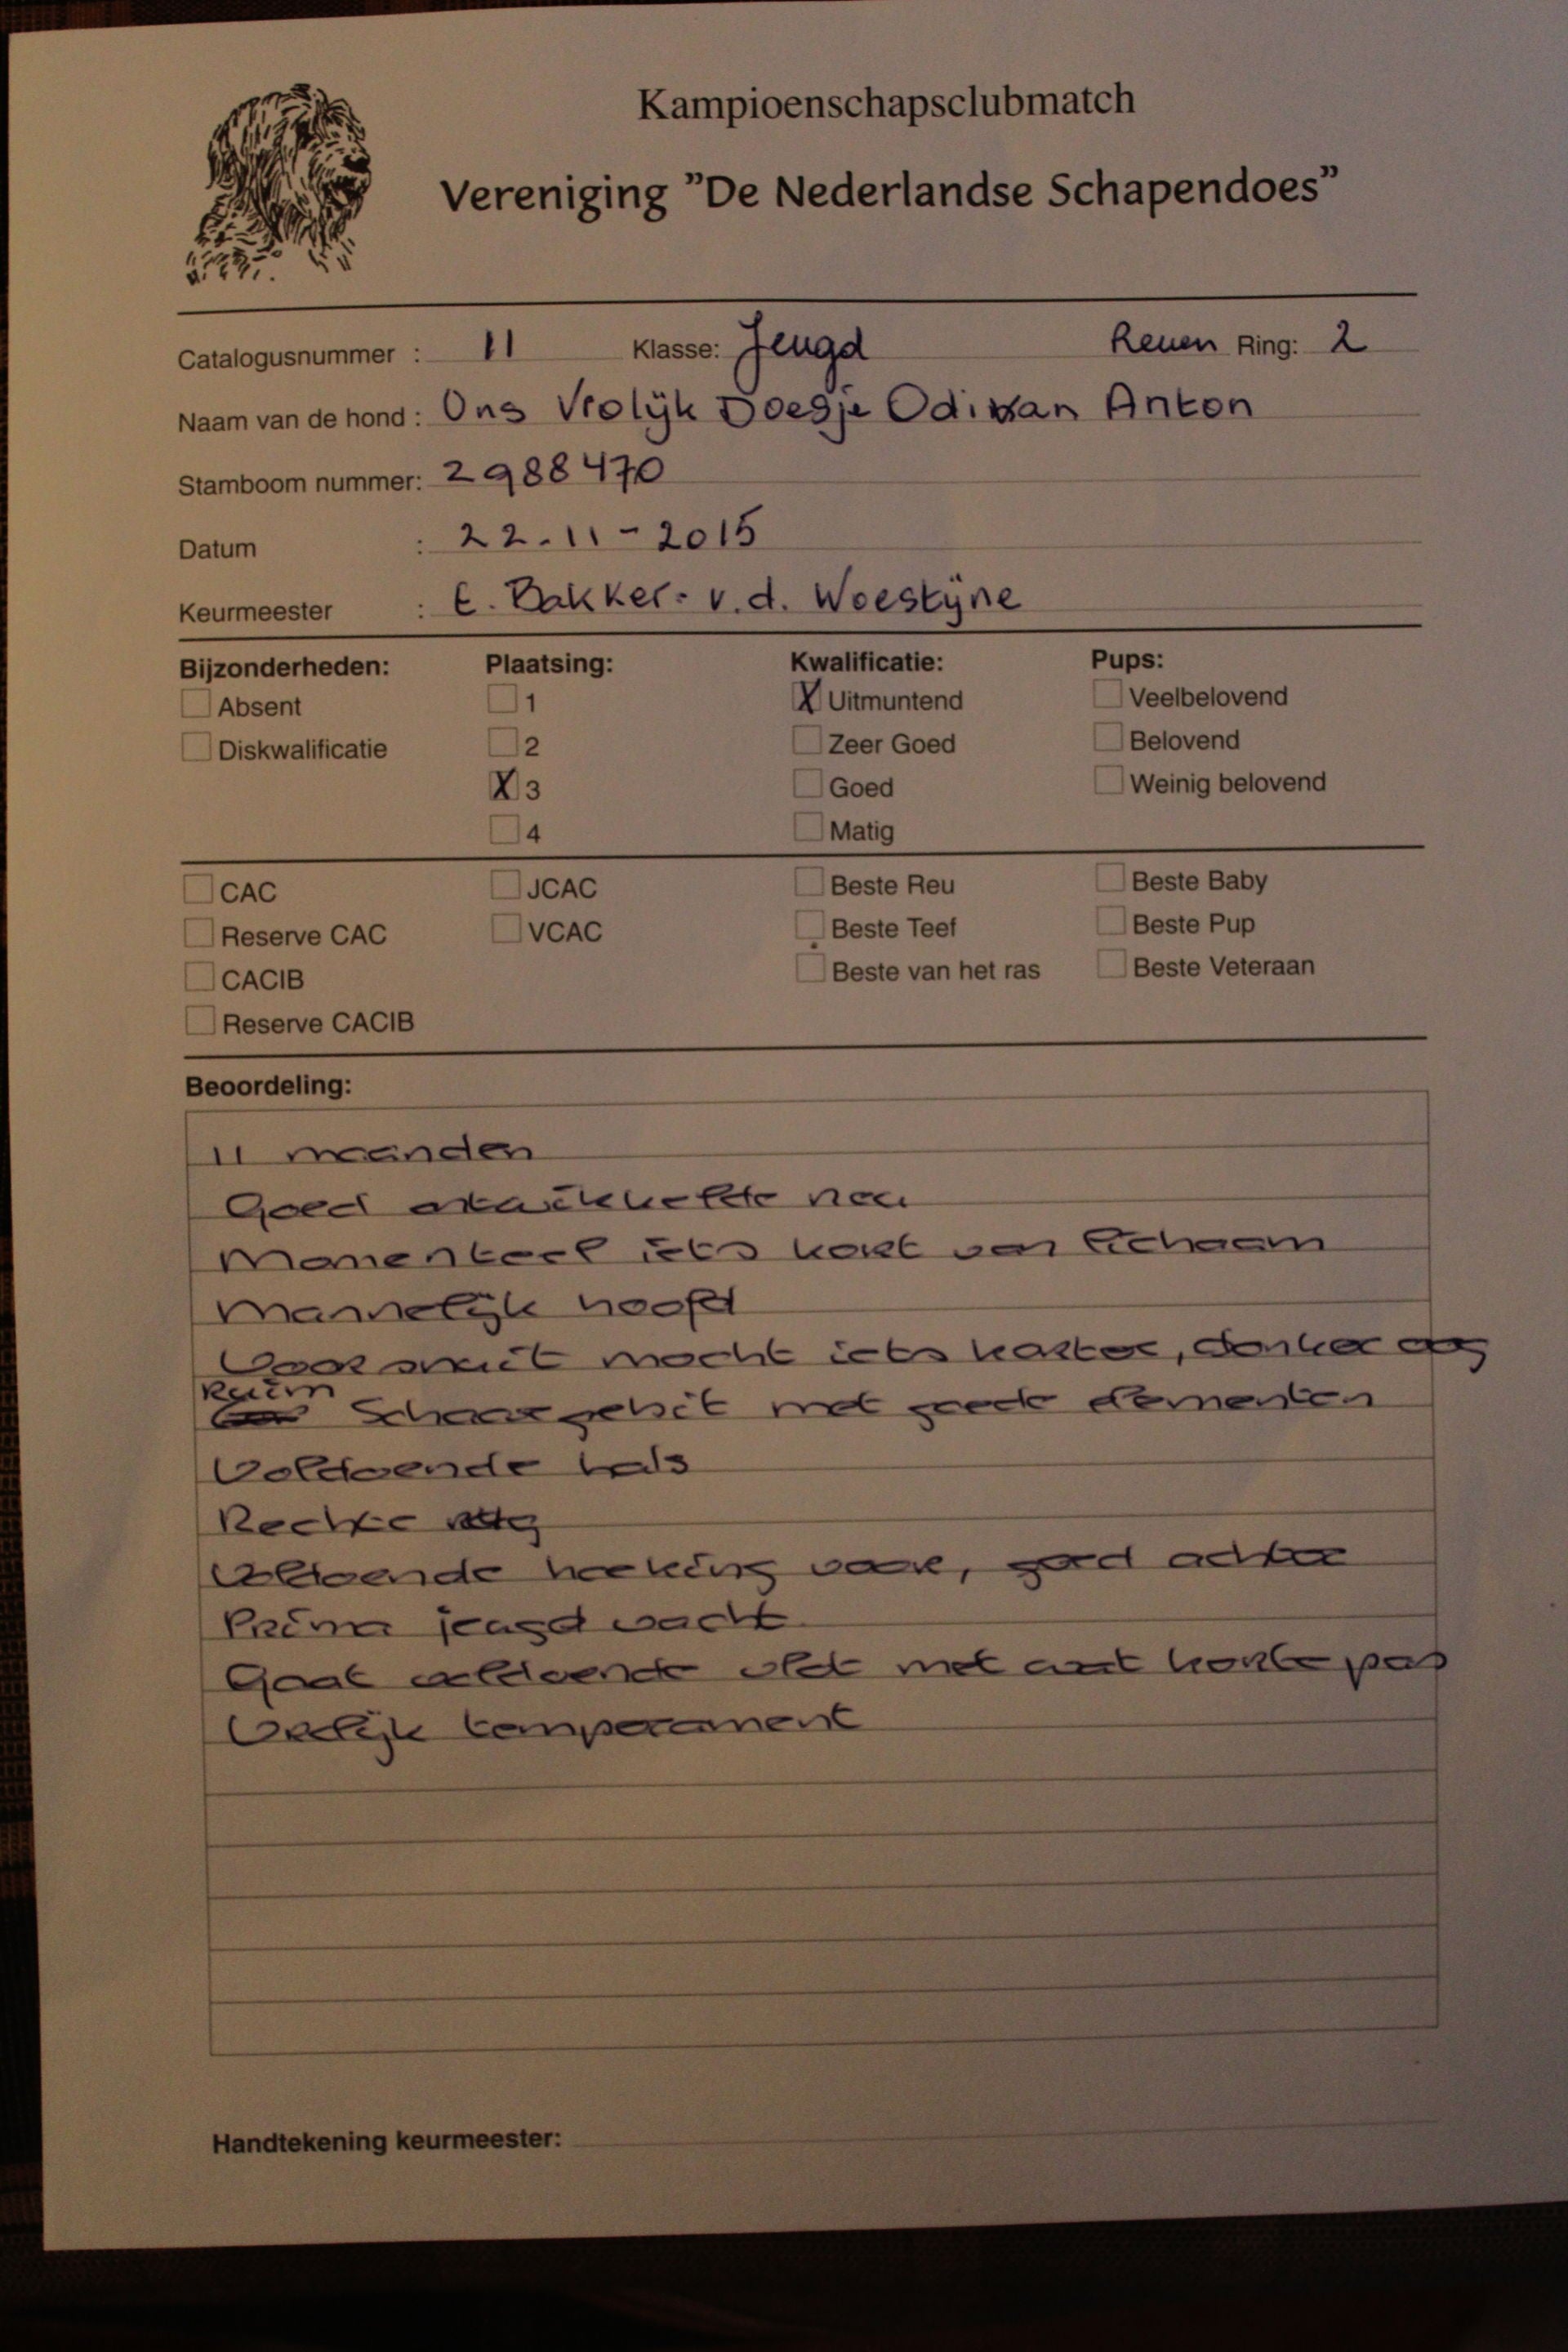 Kampioenschapsclubmatch
Vereniging ”De Nederlandse Schapendoes”
Catalogusnummer : 11 Klasse: Jeugd Reuen Ring: 2
Naam van de hond : Ons Vrolijk Doesje Odivan Anton
Stamboom nummer: 2988470
Datum : 22-11-2015
Keurmeester : E. Bakker- v.d. Woestijne
Bijzonderheden: Plaatsing: Kwalificatie: Pups:
Absent 1 X Uitmuntend Veelbelovend
Diskwalificatie 2 Zeer Goed Belovend
X 3 Goed Weinig belovend
4 Matig
CAC JCAC Beste Reu Beste Baby
Reserve CAC VCAC Beste Teef Beste Pup
CACIB Beste van het ras Beste Veteraan
Reserve CACIB
Beoordeling:
11 maanden
Goed ontwikkelde reu
Momenteel iets kort van lichaam
Mannelijk hoofd
Voorsnuit mocht iets korter, donker oog
Ruim
Schaargebit met goede elementen
Voldoende hals
Rechte rug
Voldoende hoeking voor, goed achter
Prima jeugd vacht
Gaat voldoende vlot met wat korte pas
Vrolijk temperament
Handtekening keurmeester: